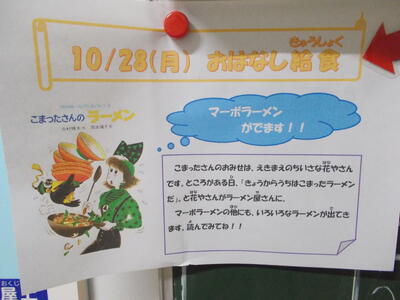 10/28(月) おはなし給食
きゅうしょく
こまったさんの
ラーメン
マーボラーメン
がでます!!
こまったさんのおみせは、えきまえのちいさな花やさん
です。ところがある日、「きょうからうちはこまったラーメン
だ」。と花やさんがラーメン屋さんに。
マーボラーメンの他にも、いろいろなラーメンが出てき
ます。読んでみてね!!
おくじ
屋